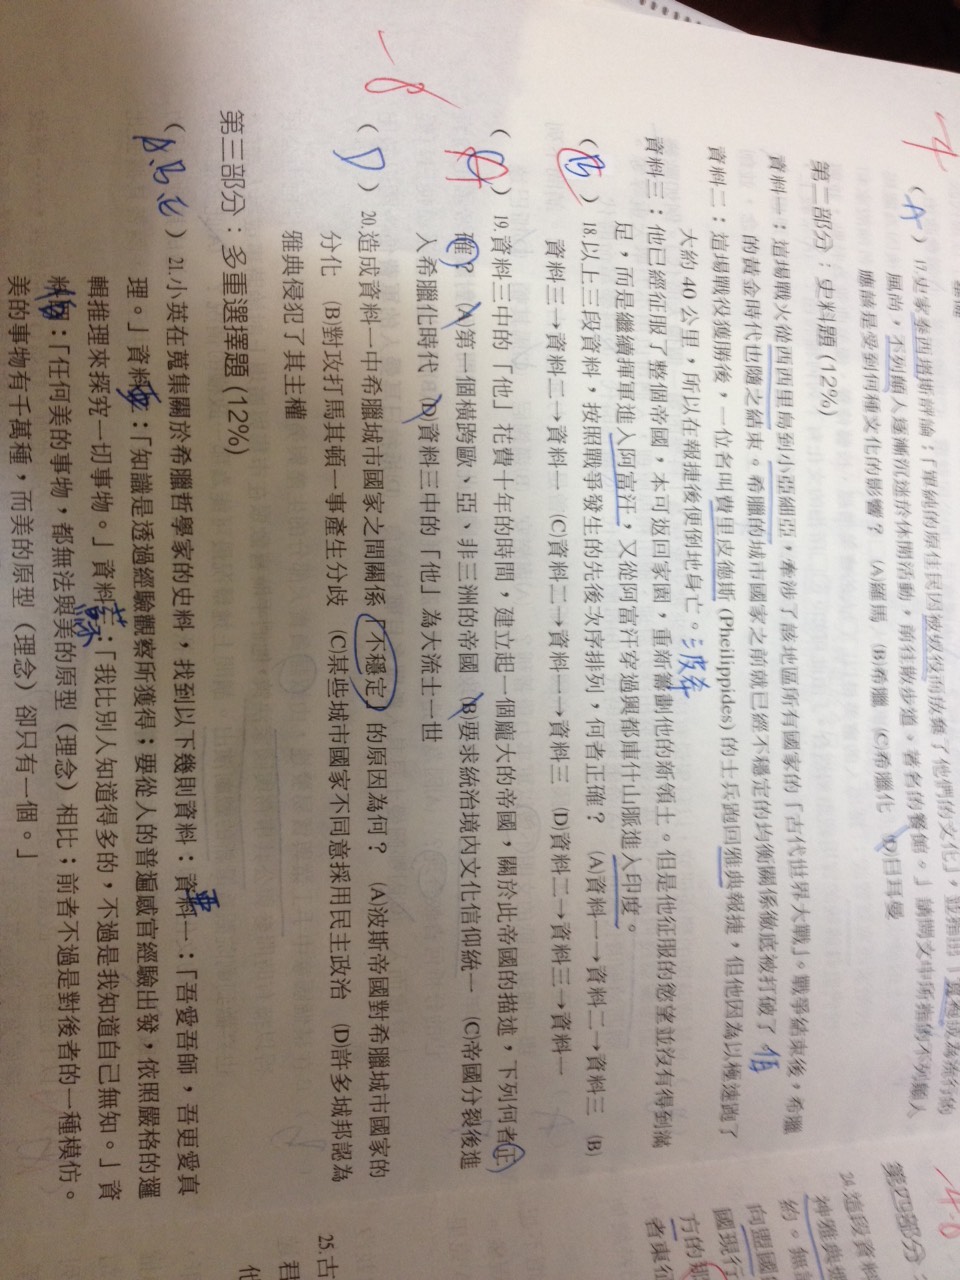 -4
(A) 17.史家泰西塔斯評論:「單純的原住民因被奴役而放棄了他們的文化」,並指出
風尚,不列顛人逐漸沉迷於休閒活動,前往散步道、著名的餐館。」請問文中所指的不列顛人
應該是受到何種文化的影響? (A)羅馬 (B)希臘 (C)希臘化 (D)日耳曼
第二部分:史料題(12%)
資料一:這場戰火從西西里島到小亞細亞,牽涉了該地區所有國家的「古代世界大戰」。戰爭結束後,希臘
的黃金時代也隨之結束。希臘的城市國家之前就已經不穩定的均衡關係徹底被打破了 伯
資料二:這場戰役獲勝後,一位名叫費里皮德斯(Pheilippides)的士兵跑回雅典報捷,但他因為以極速跑了
大約 40 公里,所以在報捷後便倒地身亡。 波希
資料三:他已經征服了整個帝國,本可返回家園,重新籌劃他的新領土。但是他征服的慾望並沒有得到滿
足,而是繼續揮軍進入阿富汗,又從阿富汗穿過興都庫什山脈進入印度。
(B) 18.以上三段資料,按照戰爭發生的先後次序排列,何者正確? (A)資料一→資料二→資料三 (B)
資料三→資料二→資料一 (C)資料二→資料一→資料三 (D)資料二→資料三→資料一
(A) 19.資料三中的「他」花費十年的時間,建立起一個龐大的帝國,關於此帝國的描述,下列何者正
確? (A)第一個橫跨歐、亞、非三洲的帝國 (B)要求統治境內文化信仰統一 (C)帝國分裂後進
入希臘化時代 (D)資料三中的「他」為大流士一世
-8
(D) 20.造成資料一中希臘城市國家之間關係「不穩定」的原因為何? (A)波斯帝國對希臘城市國家的
分化 (B)對攻打馬其頓一事產生分歧 (C)某些城市國家不同意採用民主政治 (D)許多城邦認為
雅典侵犯了其主權
第三部分:多重選擇題(12%)
( ) 21.小英在蒐集關於希臘哲學家的史料,找到以下幾則資料:資料一:「吾愛吾師,吾更愛真
理。」資料二:「知識是透過經驗觀察所獲得;要從人的普遍感官經驗出發,依照嚴格的邏
輯推理來探究一切事物。」資料三:「我比別人知道得多的,不過是我知道自己無知。」資
料四:「任何美的事物,都無法與美的原型(理念)相比;前者不過是對後者的一種模仿。
美的事物有千萬種,而美的原型(理念)卻只有一個。」
第四部分
24.這段資料
神雅典
約。無
向盟國
國現行
方的
者東征
25.古
君
他